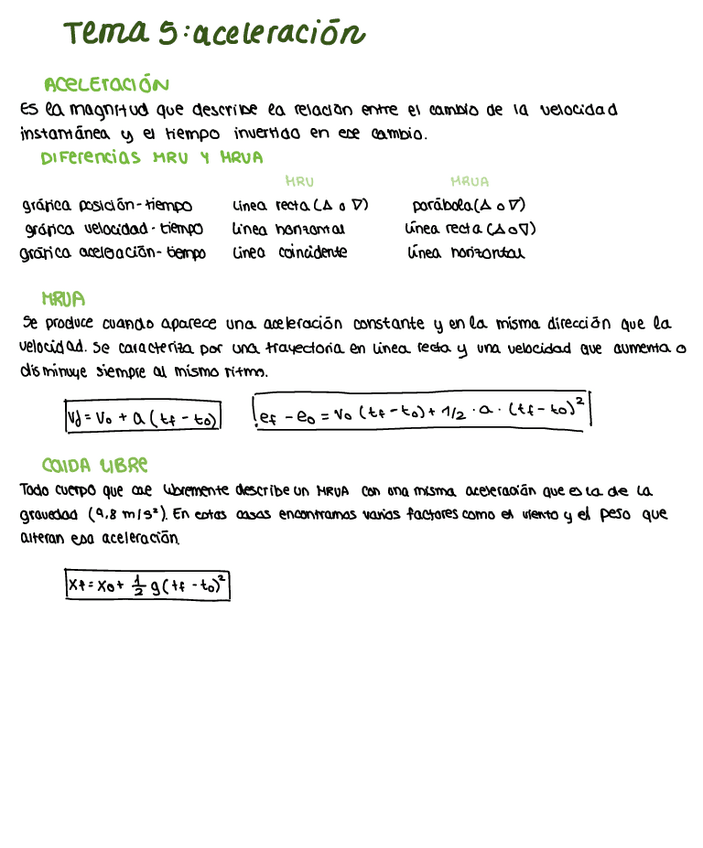 Tema 5: aceleración
ACELEración
Es la magnitud que describe la relación entre el cambio de la velocidad
instantánea y el tiempo invertido en ese cambio.
DIFerencias MRU Y MRUA
MRU MRUA
gráfica posición-tiempo línea recta (Δ o ∇) parábola (Δ o ∇)
gráfica velocidad-tiempo línea horizontal línea recta (Δ o ∇)
gráfica aceleración-tiempo línea coincidente línea horizontal
MRUA
Se produce cuando aparece una aceleración constante y en la misma dirección que la
velocidad. Se caracteriza por una trayectoria en línea recta y una velocidad que aumenta o
disminuye siempre al mismo ritmo.
Vf = Vo + a (tf - to) ef - eo = Vo (tf - to) + 1/2 · a · (tf - to)²
CAIDA LIBRE
Todo cuerpo que cae libremente describe un MRUA con una misma aceleración que es la de la
gravedad (9,8 m/s²). En estos casos encontramos varios factores como el viento y el peso que
alteran esa aceleración.
Xf = Xo + 1/2 g (tf - to)²